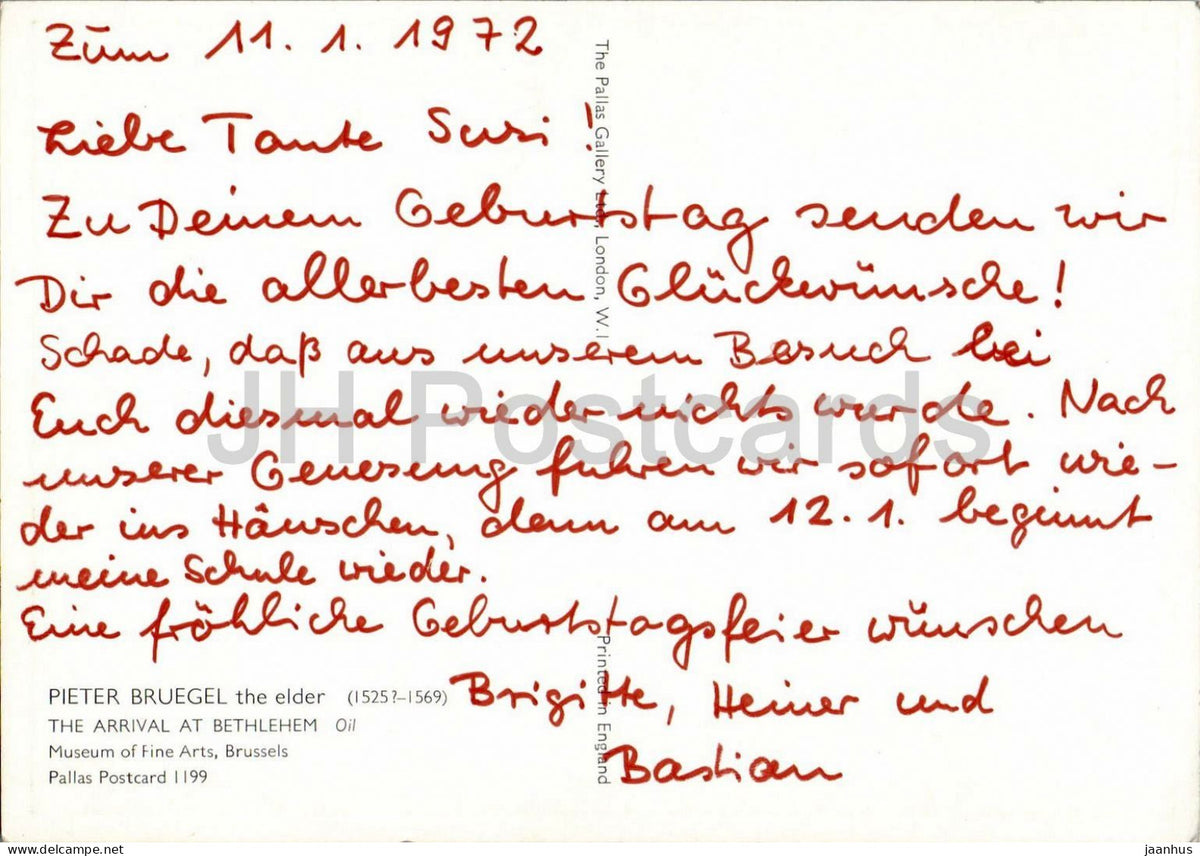 Zum 11. 1. 1972
Liebe Tante Susi !
Zu Deinem Geburtstag senden wir
Dir die allerbesten Glückwünsche!
Schade, daß aus unserem Besuch bei
Euch diesmal wieder nichts wurde. Nach
unserer Genesung fuhren wir sofort wie-
der ins Häuschen, denn am 12. 1. beginnt
meine Schule wieder.
Eine fröhliche Geburtstagsfeier wünschen
Brigitte, Heiner und
Bastian
PIETER BRUEGEL the elder (1525?–1569)
THE ARRIVAL AT BETHLEHEM Oil
Museum of Fine Arts, Brussels
Pallas Postcard 1199
The Pallas Gallery Ltd., London, W.1
Printed in England
JH Postcards
jaanhus